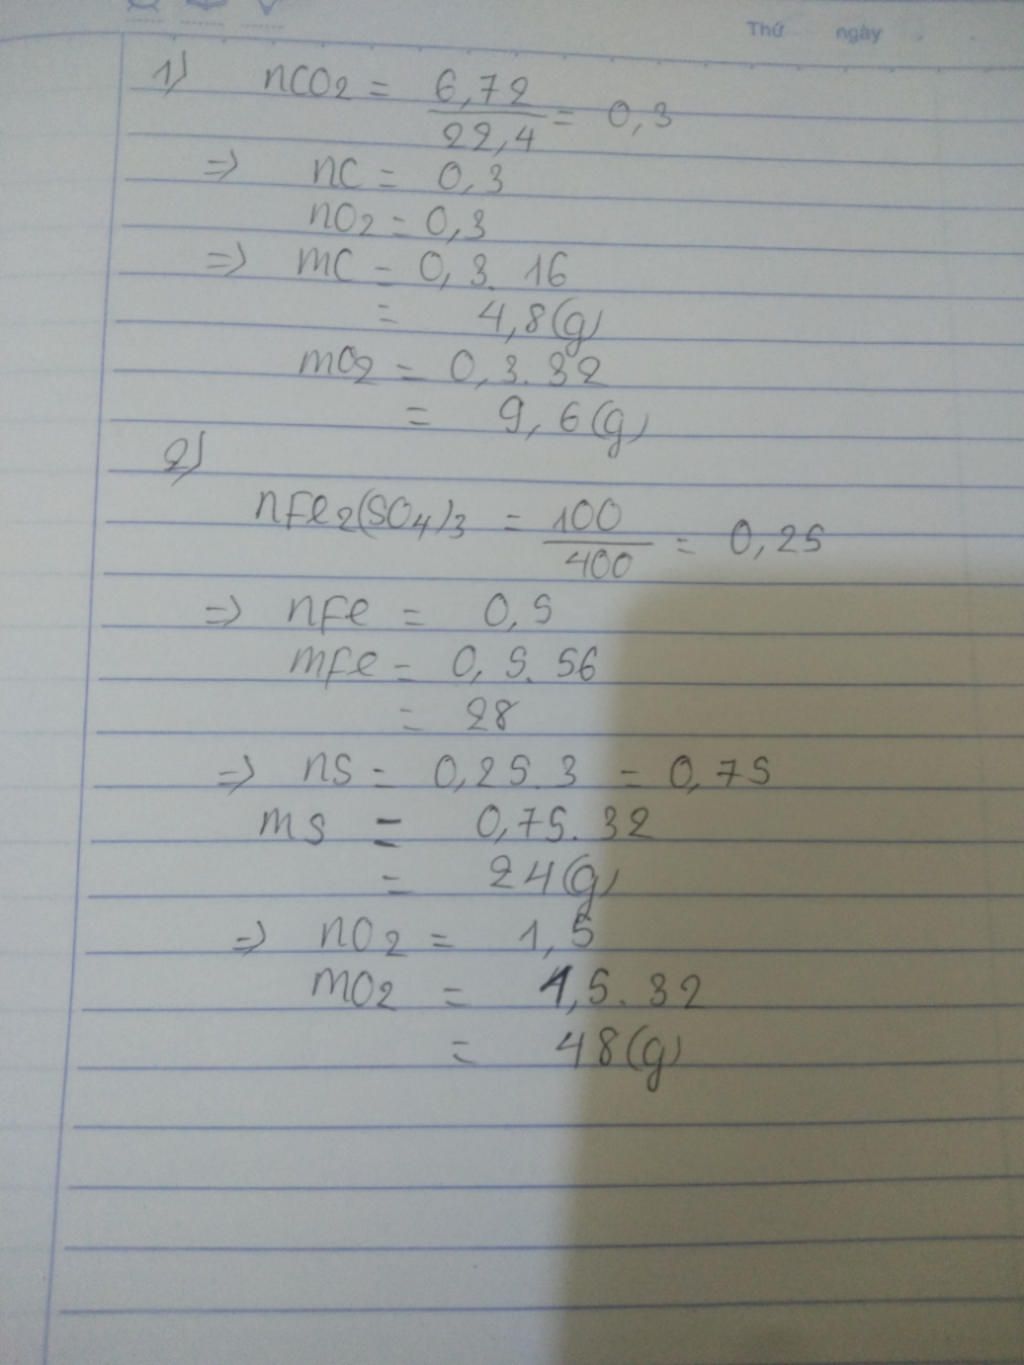 Thứ ngày
1) nCO2 = 6,72 / 22,4 = 0,3
=> nC = 0,3
nO2 = 0,3
=> mC = 0,3. 16
= 4,8(g)
mO2 = 0,3.32
= 9,6(g)
2)
nFe2(SO4)3 = 100 / 400 = 0,25
=> nFe = 0,5
mFe = 0,5.56
= 28
=> nS = 0,25.3 = 0,75
mS = 0,75.32
= 24(g)
=> nO2 = 1,5
mO2 = 1,5.32
= 48(g)